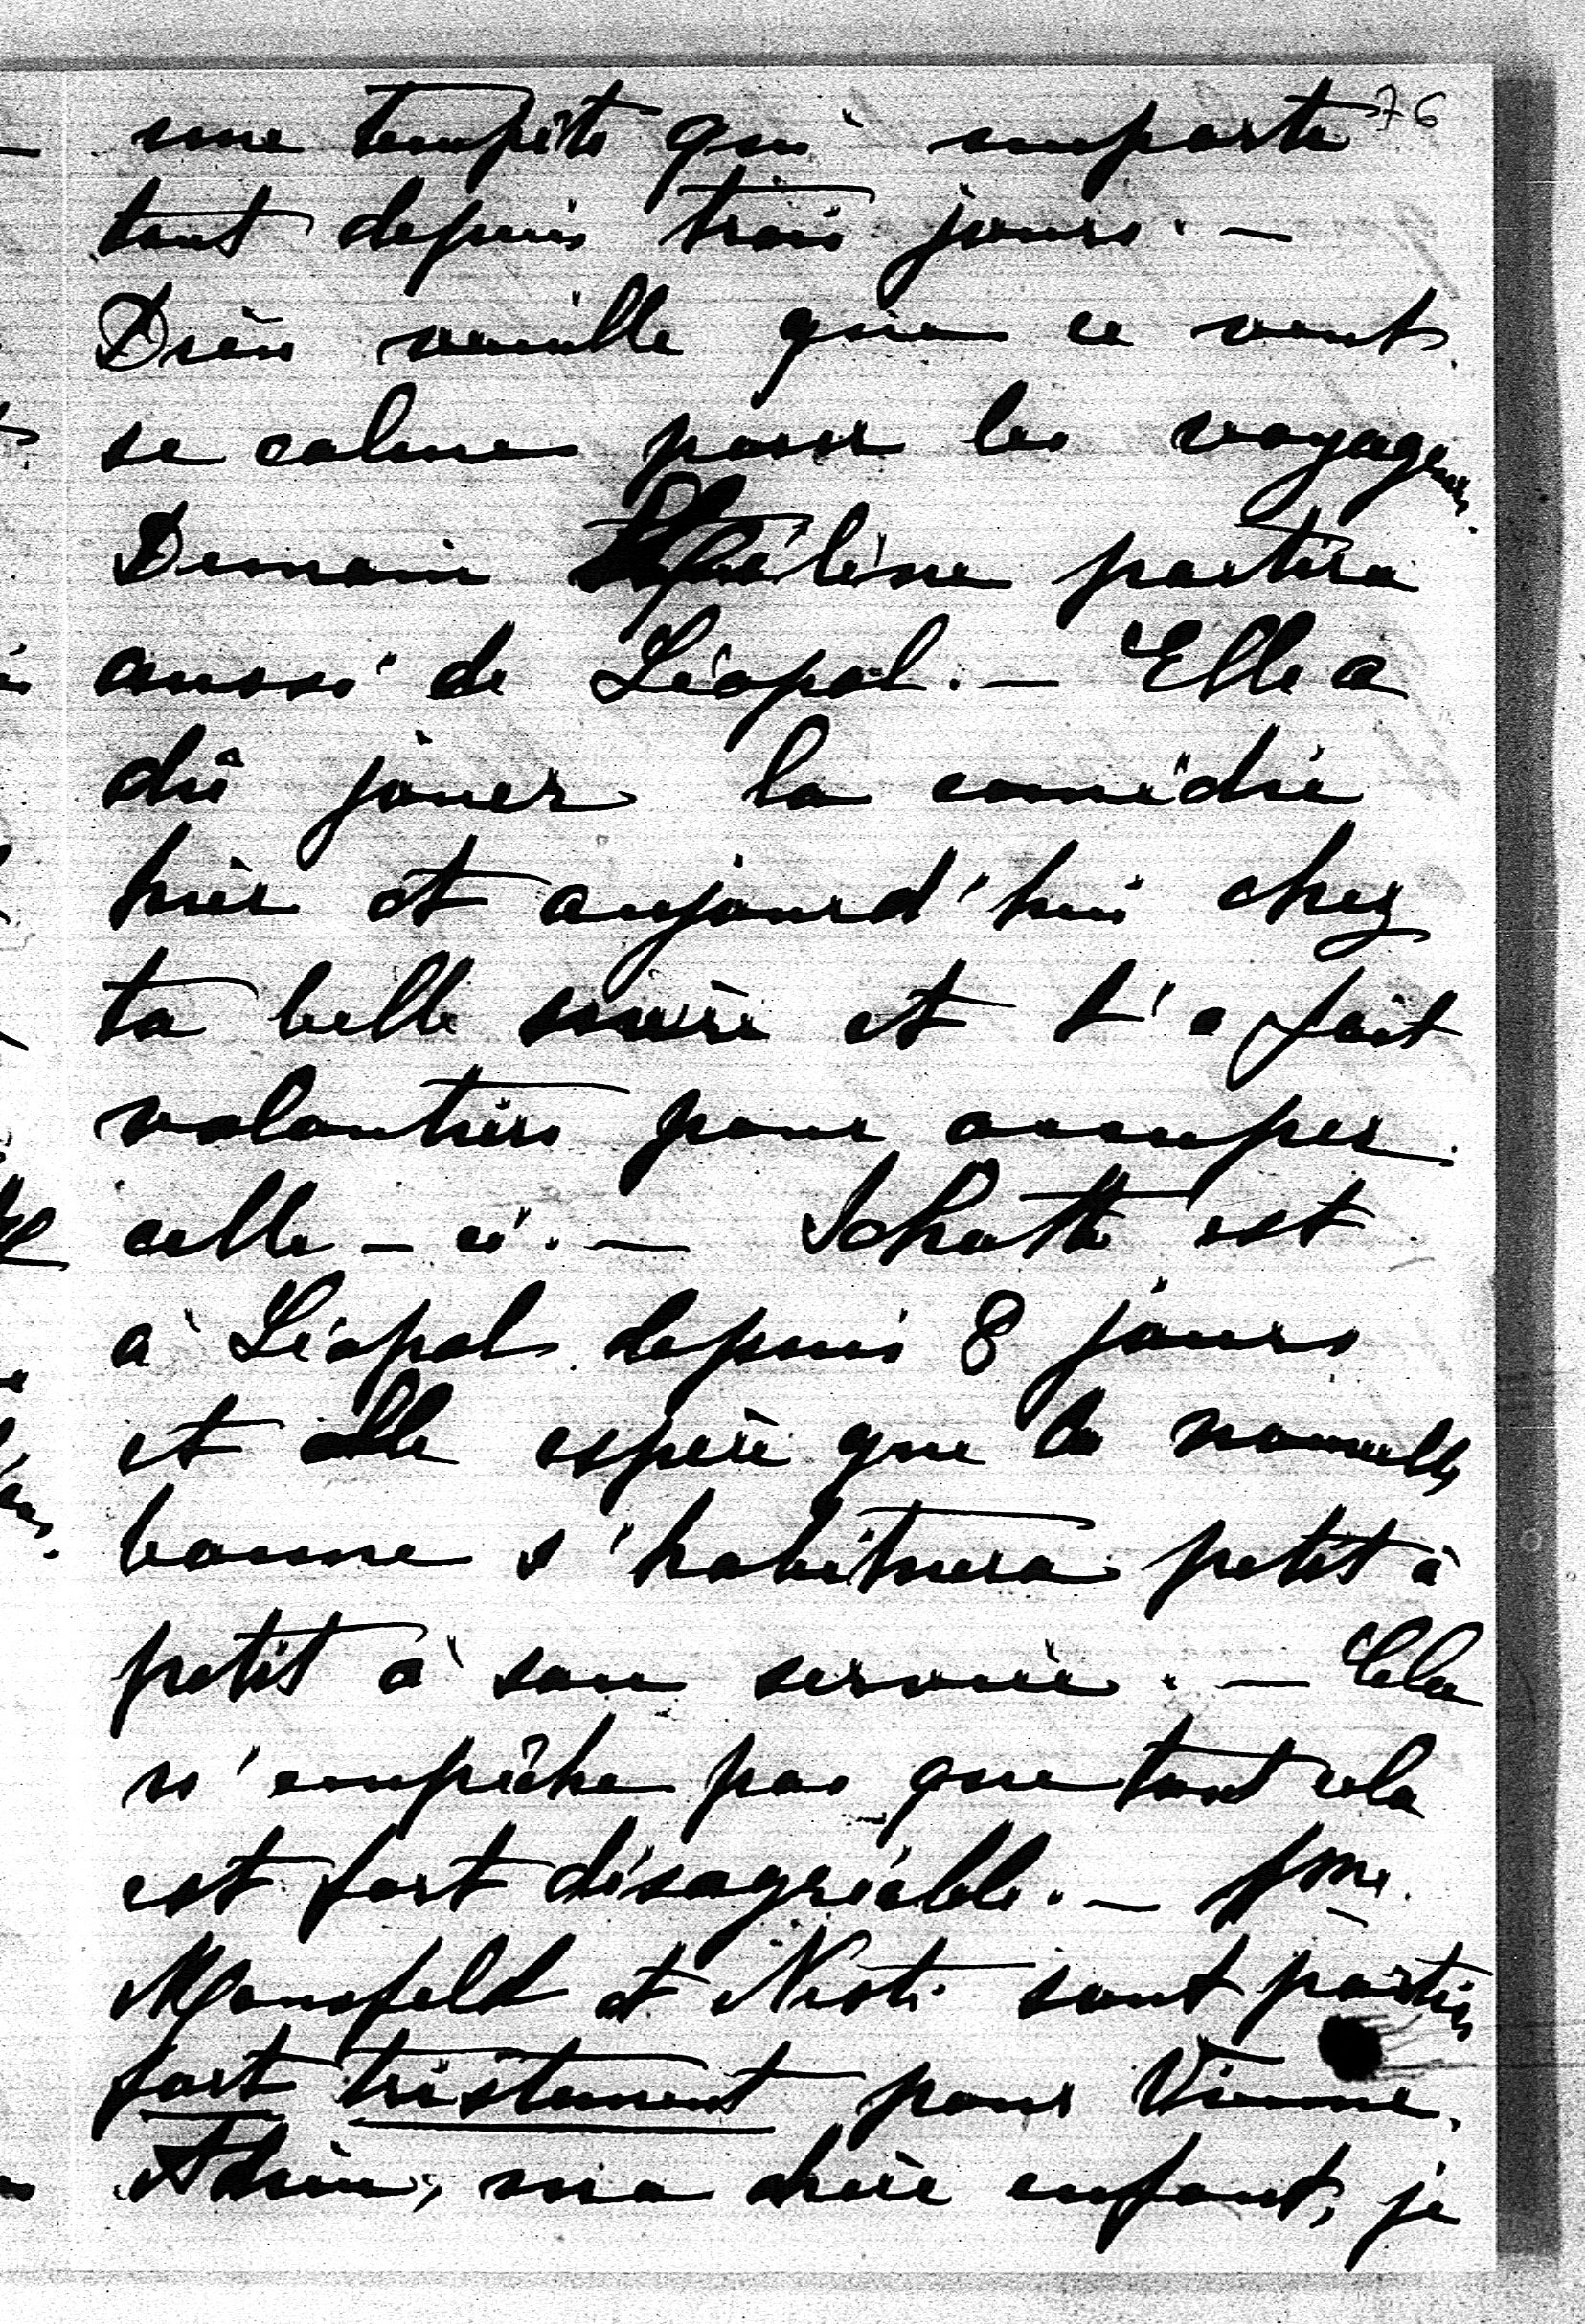 76
une tempête qui emporte
tout depuis trois jours. —
Dieu veuille que ce vent
se calme pour les voyageurs.
Demain Hélène partira
aussi de Léopol. — Elle a
dû jouer la comédie
hier et aujourd'hui chez
ta belle mère et l'a fait
volontiers pour occuper
celle-ci. — est
à Léopol depuis 8 jours
et elle espère que la nouvelle
bonne s'habituera petit à
petit à son service. — Cela
n'empêche pas que tout cela
est fort désagréable. —
Mansfeld et sont partis
fort tristement pour Vienne.
Adieu, ma chère enfant, je